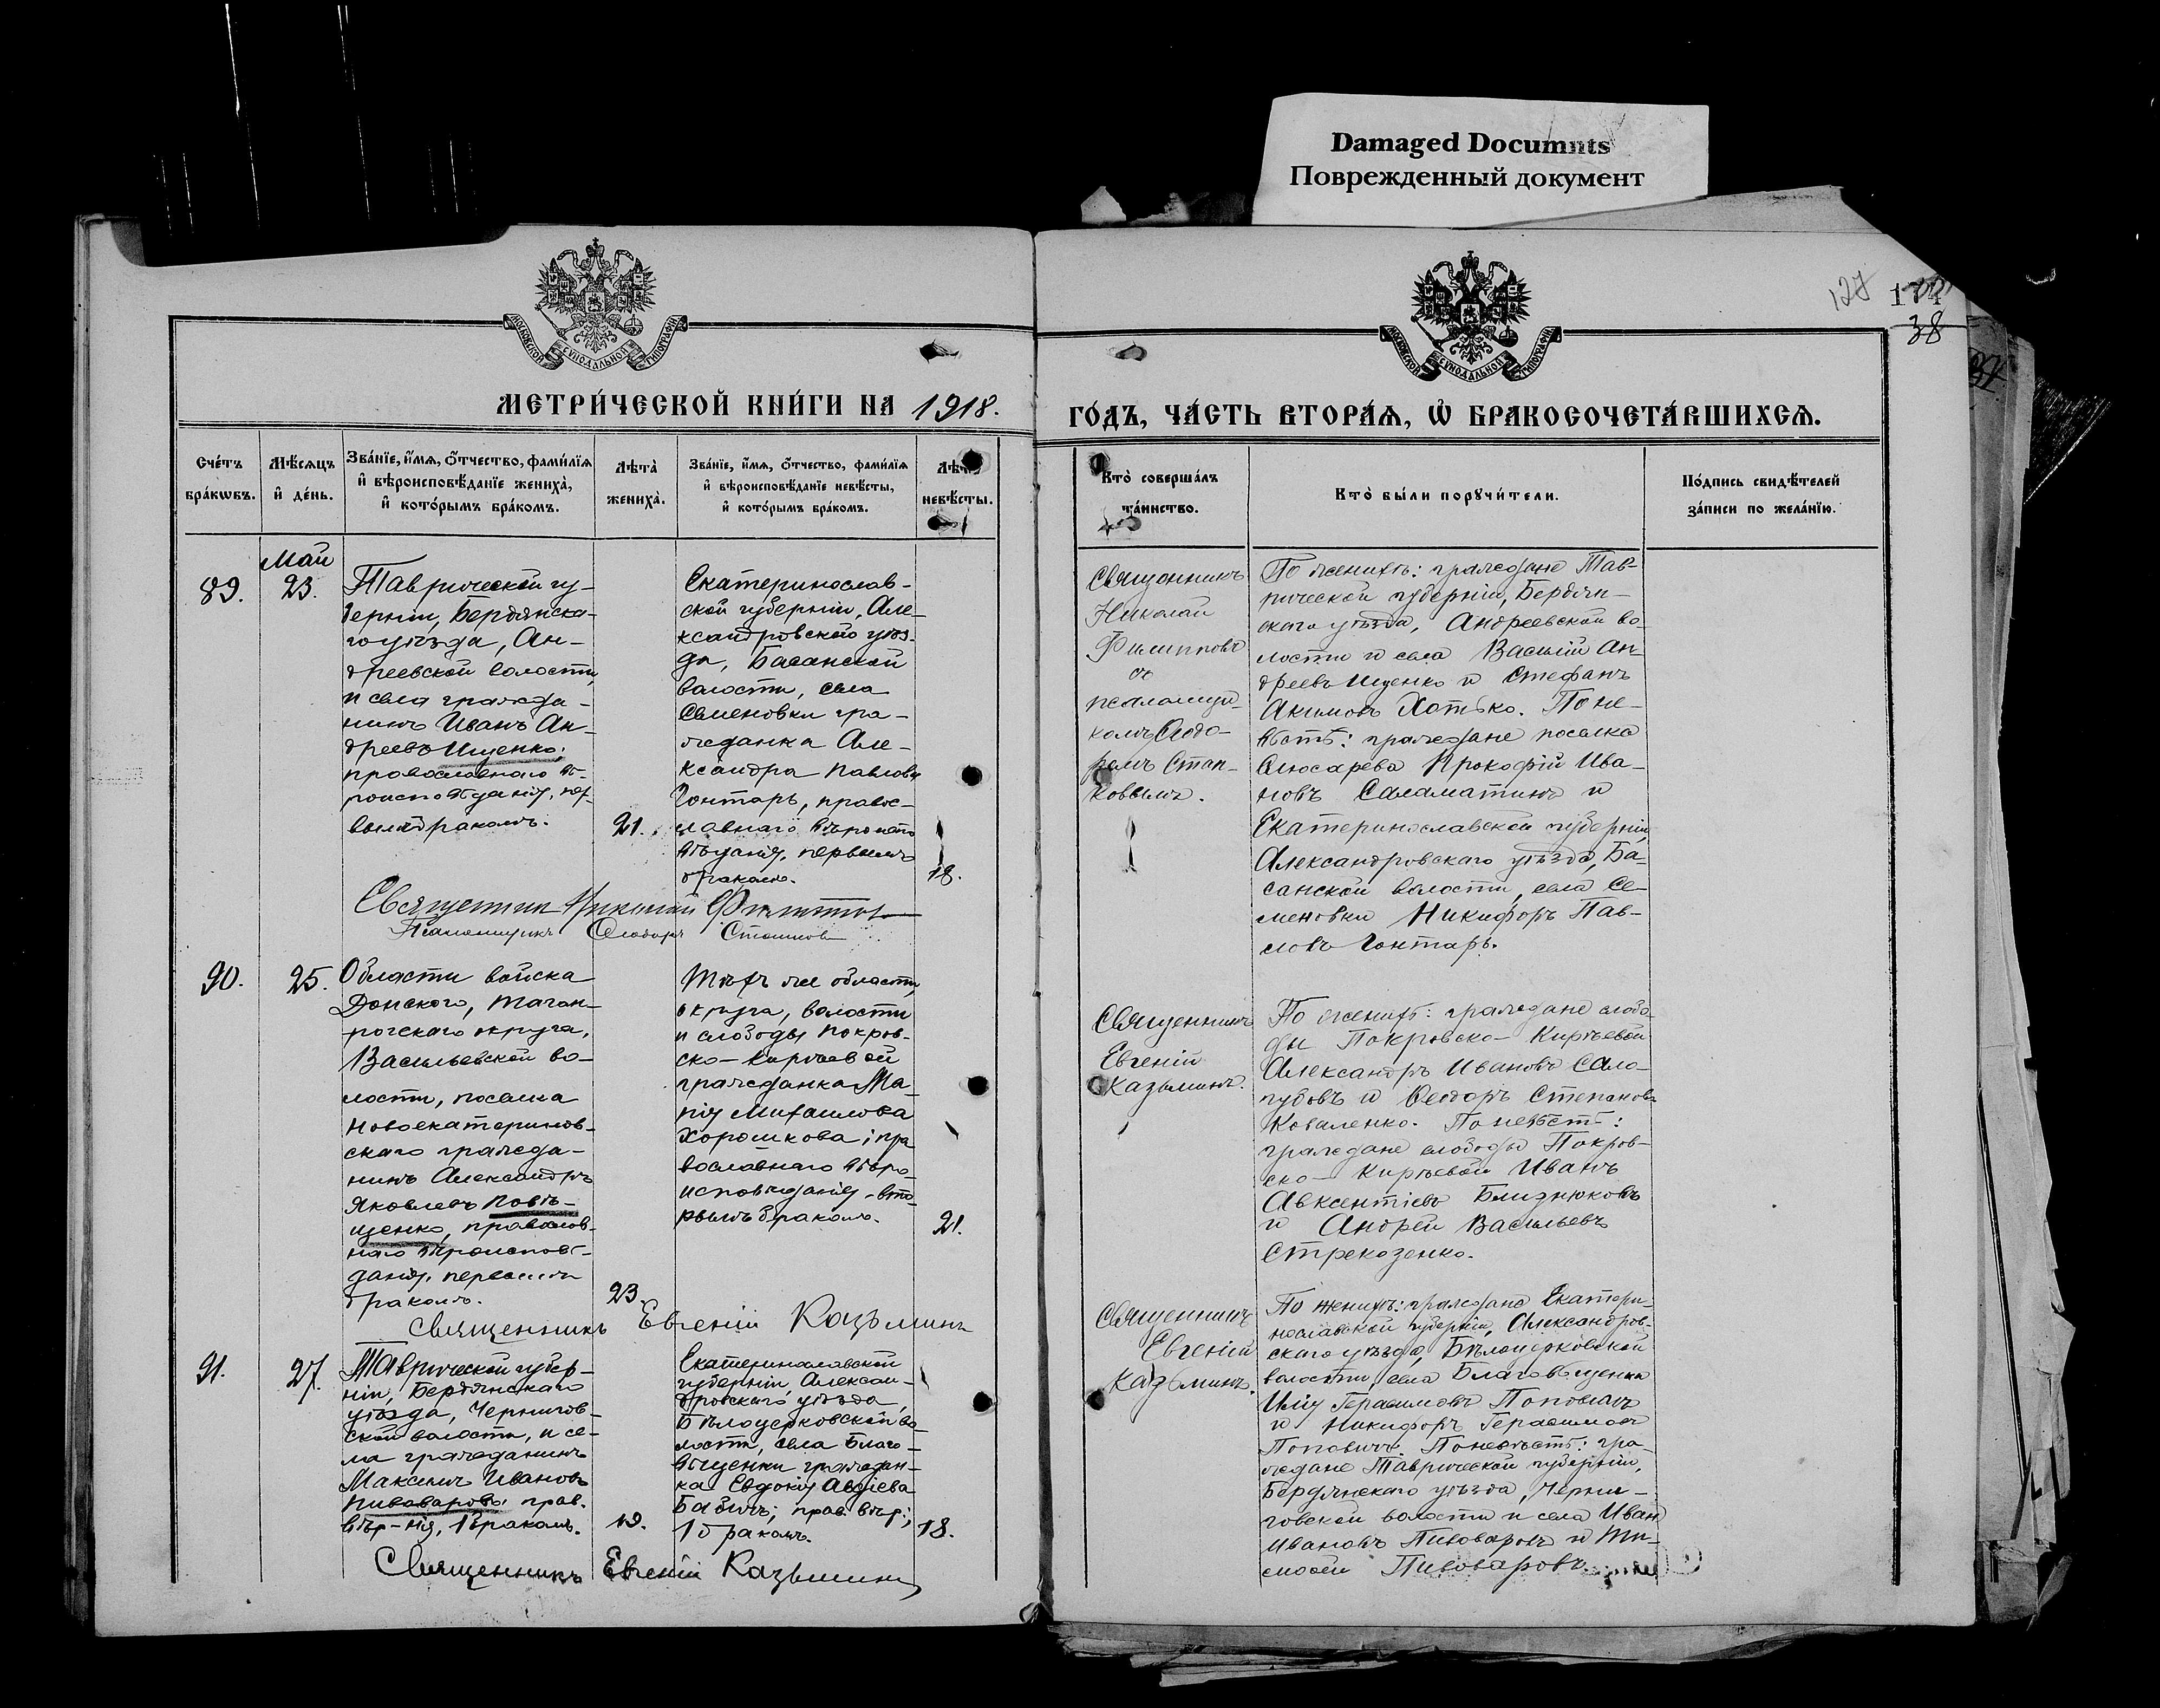 Damaged Documnts
Поврежденный документ
МОСКОВСКОЙ СѴНОДАЛЬНОЙ ТИПОГРАФІИ
МОСКОВСКОЙ СѴНОДАЛЬНОЙ ТИПОГРАФІИ
127
38
МЕТРИ́ЧЕСКОЙ КНИ́ГИ НА 1918.
ГО́ДЪ, ЧА́СТЬ ВТОРА́Ѧ, Ѡ БРАКОСОЧЕТА́ВШИХСѦ.
Сче́тъ бра́кѡвъ.
Мѣ́сѧцъ и҆ де́нь.
Зва́нїе, и҆́мѧ, ѻ҆́тчество, фами́лїѧ
и҆ вѣроисповѣ́данїе жениха̀,
и҆ кото́рымъ бра́комъ.
Лѣта̀ жениха̀.
Зва́нїе, и҆́мѧ, ѻ҆́тчество, фами́лїѧ
и҆ вѣроисповѣ́данїе невѣ́сты,
и҆ кото́рымъ бра́комъ.
невѣ́сты.
Кто̀ соверша́лъ
та́инство.
Кто̀ бы́ли порꙋчи́тели.
По́дпись свидѣ́телей
за́писи по жела́нїю.
Май
89.
23.
Таврической гу-
берніи, Бердянска-
го уѣзда, Ан-
дреевской волости,
и села гражда-
нинъ Иванъ Ан-
дреевъ Ищенко,
православнаго вѣ-
роисповѣданія, пер-
вымъ бракомъ.
21.
Екатеринослав-
ской губерніи, Але-
ксандровскаго уѣз-
да, Басанской
волости, села
Семеновки гра-
жданка Але-
ксандра Павлова
Гонтарь, правос-
лавнаго вѣроиспо
вѣданія, первымъ
бракомъ.
18.
Священникъ
Николай
Филипповъ
съ
псаломщи-
комъ Ѳедо-
ромъ Стан-
ковымъ.
По женихѣ: граждане Тав-
рической губерніи, Бердян-
скаго уѣзда, Андреевской во-
лости и села Василій Ан-
дреевъ Ищенко и Стефанъ
Акимовъ Хотько. По не-
вѣстѣ: граждане поселка
Слюсарева Прокофій Ива-
новъ Саламатинъ и
Екатеринославской губерніи,
Александровскаго уѣзда, Ба-
санской волости, села Се-
меновки Никифоръ Пав-
ловъ Гонтарь.
Священникъ Николай Филиппов
Псаломщикъ Ѳеодоръ
90.
25.
Области войска
Донского, Таган-
рогскаго округа,
Васильевской во-
лости, поселка
Новоекатеринов-
скаго гражда-
нинъ Александръ
Яковлевъ Повѣ-
щенко, православ-
наго вѣроисповѣ-
данія, первымъ
бракомъ.
23.
Тѣхъ же области,
округа, волости
и слободы Покров-
ско-Кирѣевой
гражданка Ма-
рія Михайлова
Хорошкова; пра
вославнаго вѣро
исповѣданія, вто
рымъ бракомъ.
21.
Священникъ
Евгеній
Казьминъ.
По женихѣ: граждане слобо-
ды Покровско-Кирѣевой
Александръ Ивановъ Сало-
губовъ и Ѳеодоръ Степановъ
Коваленко. По невѣстѣ:
граждане слободы Покров-
ско-Кирѣевой Иванъ
Авксентіевъ Близнюковъ
и Андрей Васильевъ
Стрекозенко.
Священникъ Евгеній Казьминъ
91.
27.
Таврической губер-
ніи, Бердянскаго
уѣзда, Чернигов-
ской волости, и се-
ла гражданинъ
Максимъ Ивановъ
Пивоваровъ, прав.
вѣр-нія, 1 бракомъ.
19.
Екатеринославской
губерніи, Алексан-
дровскаго уѣзда,
Бѣлоцерковской во
лости, села Благо-
вѣщенки граждан-
ка Евдокія Авдіева
Бабичъ; прав. вѣр.;
1 бракомъ.
18.
Священникъ
Евгеній
Казьминъ.
По женихѣ: граждане Екатери-
нославской губерніи, Александров-
скаго уѣзда, Бѣлоцерковской
волости, села Благовѣщенки
Илія Герасимовъ Поповичъ
и Никифоръ Герасимовъ
Поповичъ. По невѣстѣ: гра-
ждане Таврической губерніи,
Бердянскаго уѣзда, Черни-
говской волости и села Иванъ
Ивановъ Пивоваровъ и Ти-
мофей Пивоваровъ
Священникъ Евгеній Казьминъ